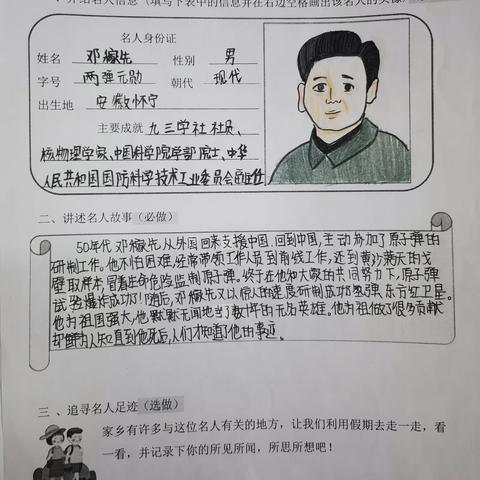 介绍名人信息（填写下表中的信息并在右边空格画出该名人的头像
名人身份证
姓名 邓稼先 性别 男
字号 两弹元勋 朝代 现代
出生地 安徽怀宁
主要成就 九三学社社员、
核物理学家、中国科学院学部院士、中华
人民共和国国防科学技术工业委员会
二、讲述名人故事（必做）
50年代邓稼先从外国回来支援中国，回到中国，主动参加了原子弹的
研制工作。他不怕困难，经常带领工作人员到前线工作，还到黄沙满天的戈
壁取样本，冒着生命危险监制原子弹。终于在他和大家的共同努力下，原子弹
试验爆炸成功了！随后，邓稼先又以惊人的速度研制成功氢弹、东方红卫星。
他为祖国强大，他默默无闻地当了数十年的无名英雄，他为祖做了很多贡献
却鲜为人知直到他死后，人们才知道了他的事迹。
三、追寻名人足迹（选做）
家乡有许多与这位名人有关的地方，让我们利用假期去走一走，看
一看，并记录下你的所见所闻，所思所想吧！